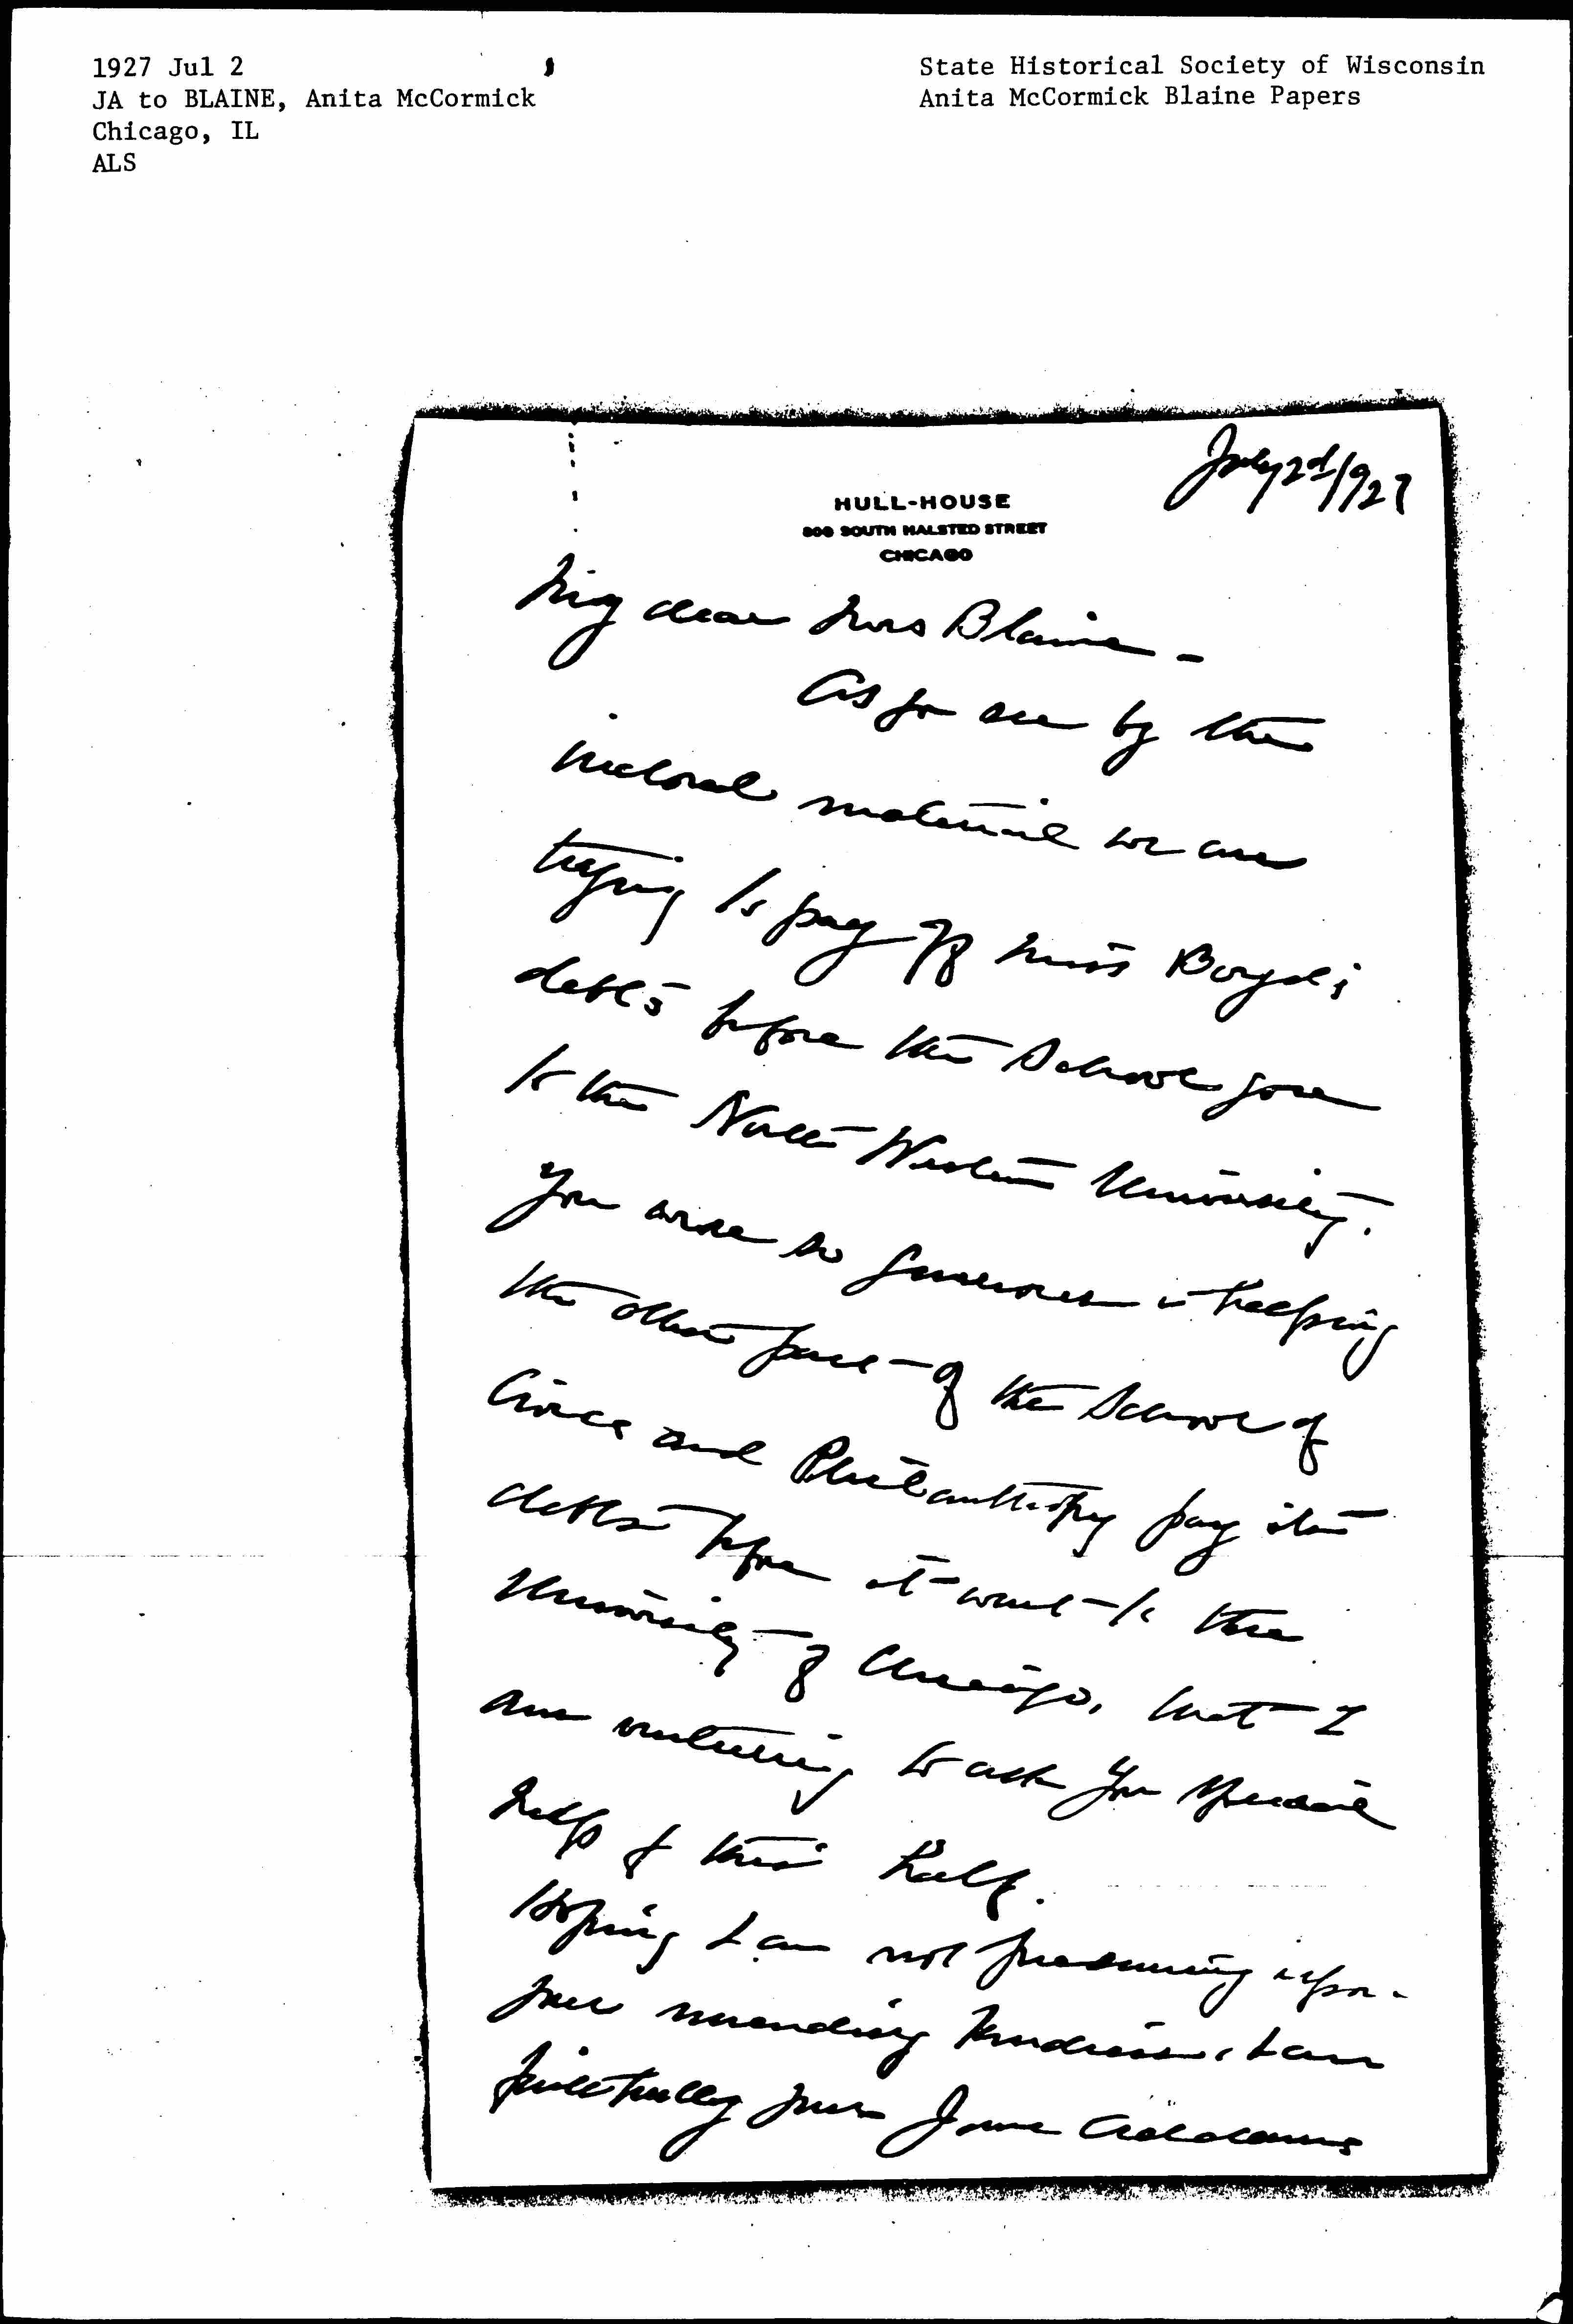 1927 Jul 2
JA to BLAINE, Anita McCormick
Chicago, IL
ALS
State Historical Society of Wisconsin
Anita McCormick Blaine Papers
July 2d/1927
HULL-HOUSE
800 SOUTH HALSTED STREET
CHICAGO
My dear Mrs Blaine -
As you see by the
inclosed material we are
trying to pay off Miss Boyd's
debts before the School goes
to the North Western University.
You were so generous in helping
the other part of the School of
Civics and Philanthropy pay its
debts before it went to the
University of Chicago, that I
am venturing to ask you special
help for this half.
Hoping I am not presuming upon
your unending kindness, I am
faithfully yours Jane Addams